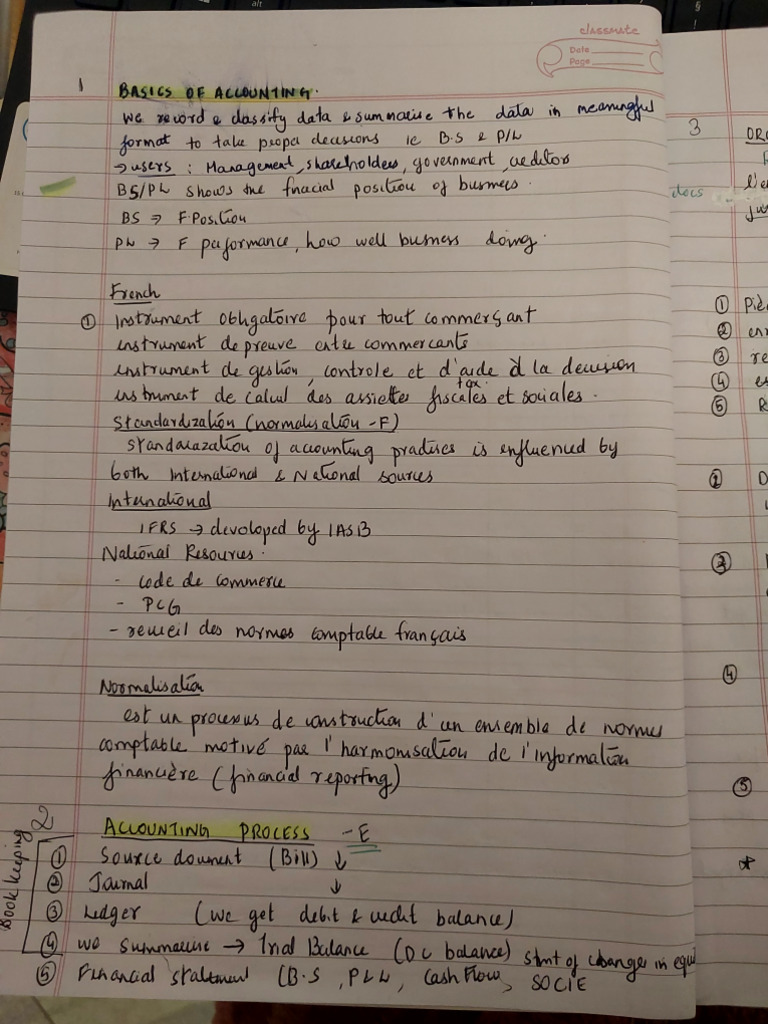 classmate
Date
Page
1 BASICS OF ACCOUNTING.
We record & classify data & summarise the data in meaningful
format to take proper decisions ie B.S & P/L
→ users : Management, shareholders, government, creditors
BS/PL shows the finacial position of business.
BS → F.Position
PL → F performance, how well business doing.
French
① Instrument obligatoire pour tout commerçant
instrument de preuve entre commercants
instrument de gestion, controle et d'aide à la decision
tax
instrument de calcul des assiettes fiscales et sociales.
Standardization (normalisation -F)
standarazation of accounting practises is influenced by
both International & National sources
International
IFRS → devoloped by IASB
National Resources.
- code de commerce
- PCG
- recueil des normes comptable français
Normalisation
est un processus de construction d'un ensemble de normes
comptable motivé par l'harmonisation de l'information
financière (financial reporting)
2 ACCOUNTING PROCESS -E
Book keeping
① Source doument (Bill) ↓
② Journal ↓
③ Ledger (we get debit & credit balance)
④ we summarise → Trial Balance (DC balance) stmt of change in equi
⑤ Financial statement (B.S, P&L, Cash Flow, SOCIE
3
docs
①
②
③
④
⑤
④
⑤
*